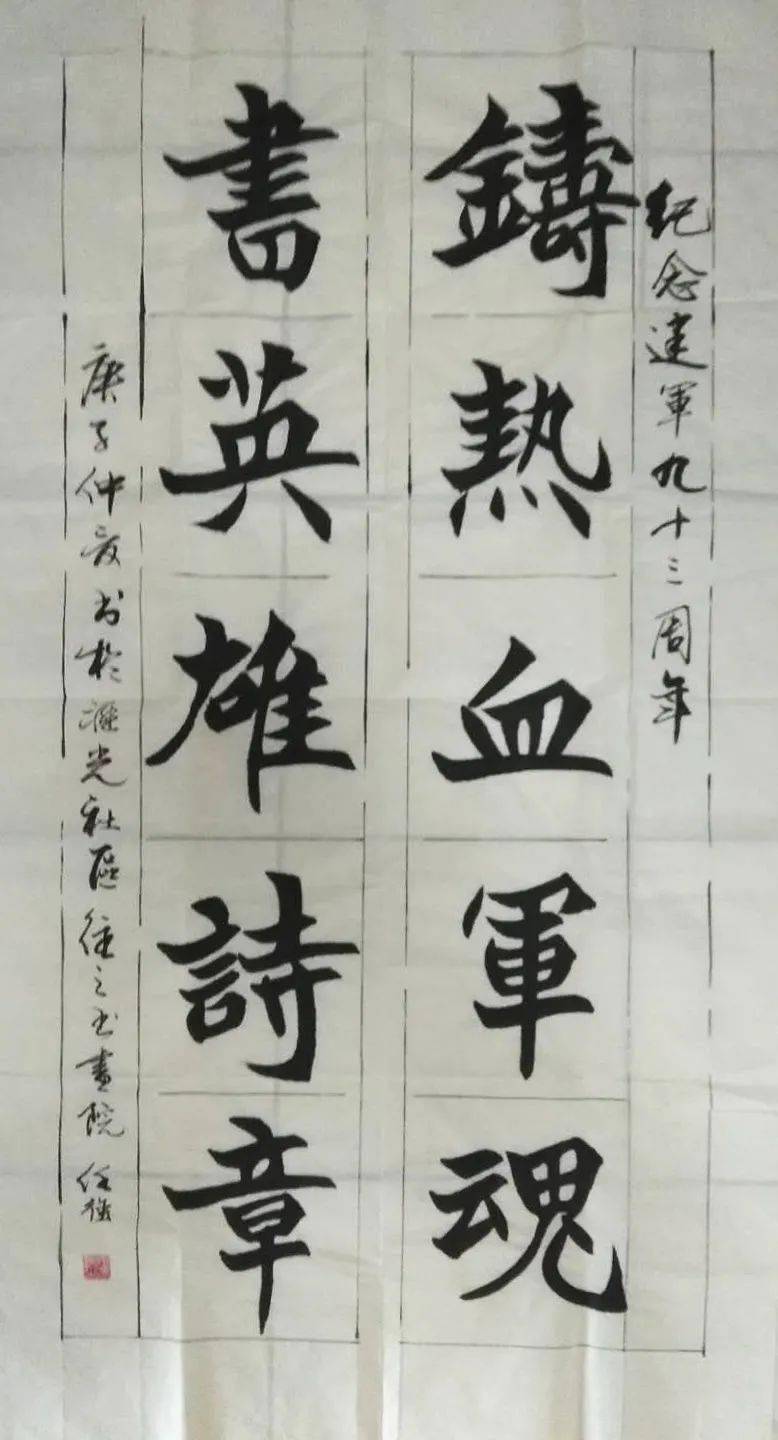 紀念建軍九十三周年
鑄熱血軍魂
書英雄詩章
庚子仲夏书於滙光社區徃之书畫院 任強